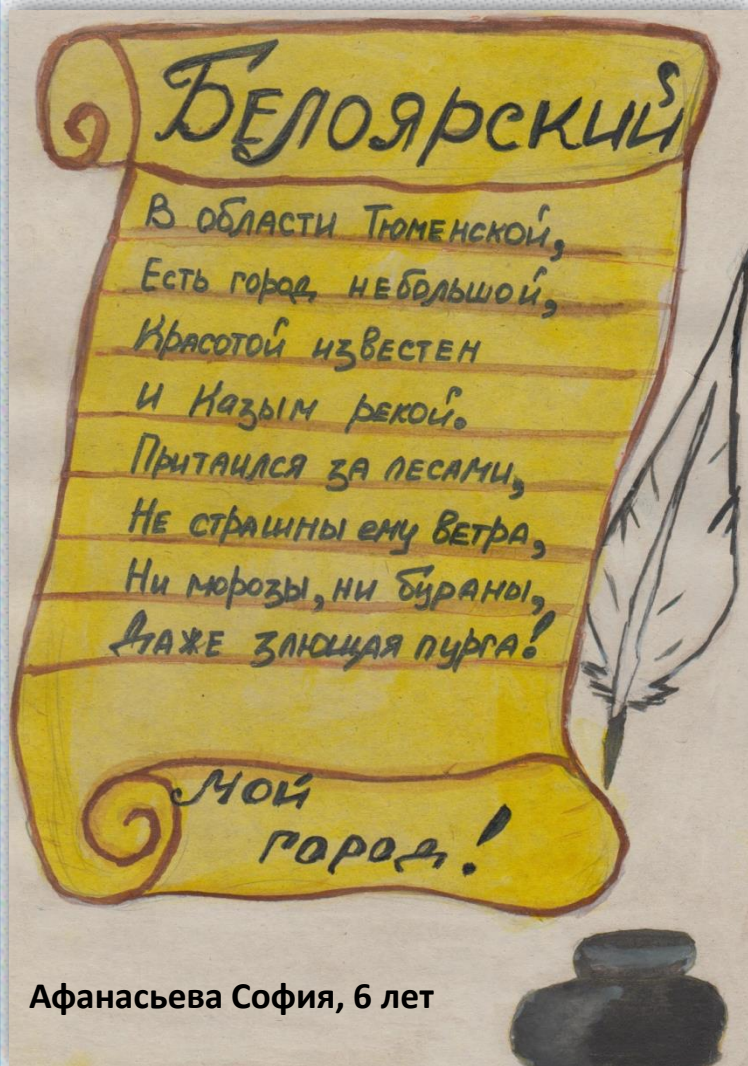 Белоярский
В области Тюменской,
Есть город небольшой,
Красотой известен
и Казым рекой.
Притаился за лесами,
Не страшны ему ветра,
Ни морозы, ни бураны,
Даже злющая пурга!
Мой
город!
Афанасьева София, 6 лет